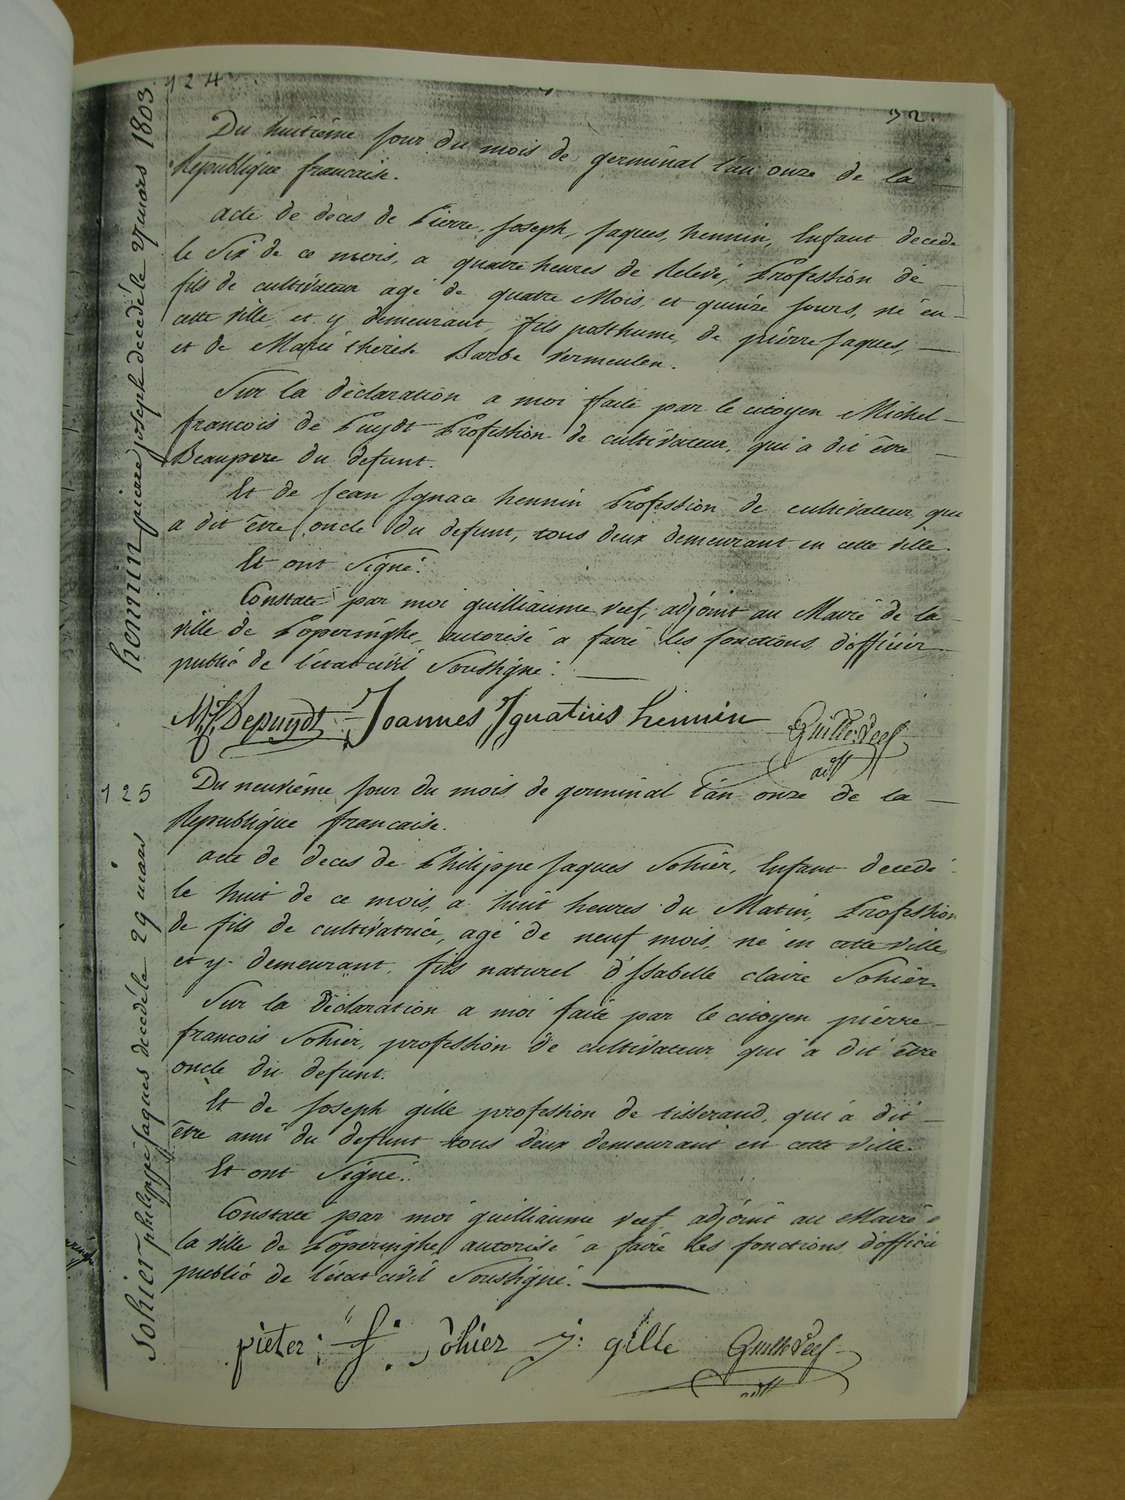 124
92.
Du huitième jour du mois de germinal l'an onze de la
Republique francaise.
acte de deces de Pierre, Joseph, Jaques, hennin, Enfant decede
le Six de ce mois, a quatre heures de Relevé, Profession de
fils de cultivateur agé de quatre Mois et quinze jours, né en
cette ville et y demeurant, fils posthume, de pierre Jaques,
et de Marie therese Barbe Vermeulen.
Sur la déclaration a moi faite par le citoyen Michel
francois de Puydt Profession de cultivateur, qui a dit être
Beaupere du defunt.
Et de Jean Ignace hennin Profession de cultivateur qui
a dit être oncle du defunt, tous deux demeurant en cette ville.
Et ont Signé.
Constaté par moi guilliaume veef, adjoint au Maire de la
ville de Poperinghe, autorisé a faire les fonctions d'officier
public de l'état civil Soussigné.
M. f. Depuydt Joannes Ignatius hennin Guille. Veef
adjt
hennin pierre joseph decedé le 27 mars 1803
125
Du neuvième jour du mois de germinal l'an onze de la
Republique francaise.
acte de deces de Philippe Jaques Sohier, Enfant decedé
le huit de ce mois, a huit heures du Matin, Profession
de fils de cultivatrice, agé de neuf mois, né en cette ville,
et y demeurant, fils naturel d'Isabelle claire Sohier.
Sur la déclaration a moi faite par le citoyen pierre
francois Sohier, profession de cultivateur qui a dit être
oncle du defunt.
Et de Joseph gille profession de tisserand, qui a dit
être ami du defunt tous deux demeurant en cette ville.
Et ont Signé.
Constaté par moi guilliaume veef adjoint au Maire
la ville de Poperinghe, autorisé a faire les fonctions d'officie
public de l'état civil Soussigné.
pieter: f: Sohier j: gille Guille Veef
adjt
Sohier philippe jaques decedé le 29 mars